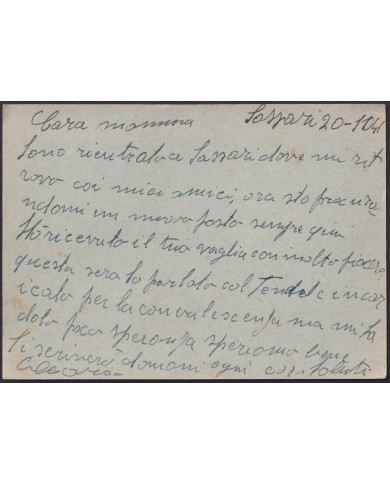 Cara mamma Sassari 20-1041
Sono rientrato a Sassari dove mi rit
rovo coi miei amici, ora sto procura
ndomi un nuovo posto sempre qui
Hò ricevuto il tuo vaglia con molto piacere
questa sera lo parlato col Tend inca
icato per la convalescenza ma mi ha
dato poco speranza speriamo bene
Ti scriverò domani ogni cosa saluti